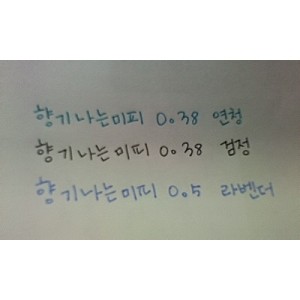 향기나는미피 0.38 연청
향기나는미피 0.38 검정
향기나는미피 0.5 라벤더